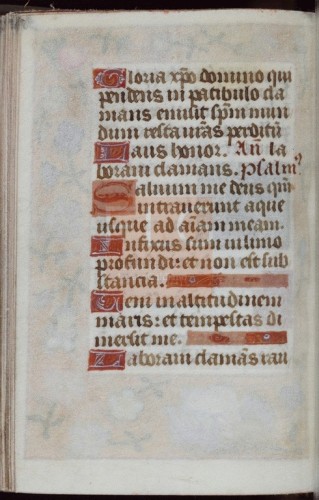 Gloria xpo domino qui
pendens in patibulo cla
mans emisit spm mun
dum restaurās perditū
Laus honor. Añ la
boraui clamans. Psalm⁹
Saluum me deus qm̄
intrauerunt aque
usque ad aīam meam.
Infixus sum in limo
profundi: et non est sub
stancia.
Ueni in altitudinem
maris: et tempestas di
mersit me.
Laboraui clamās rau